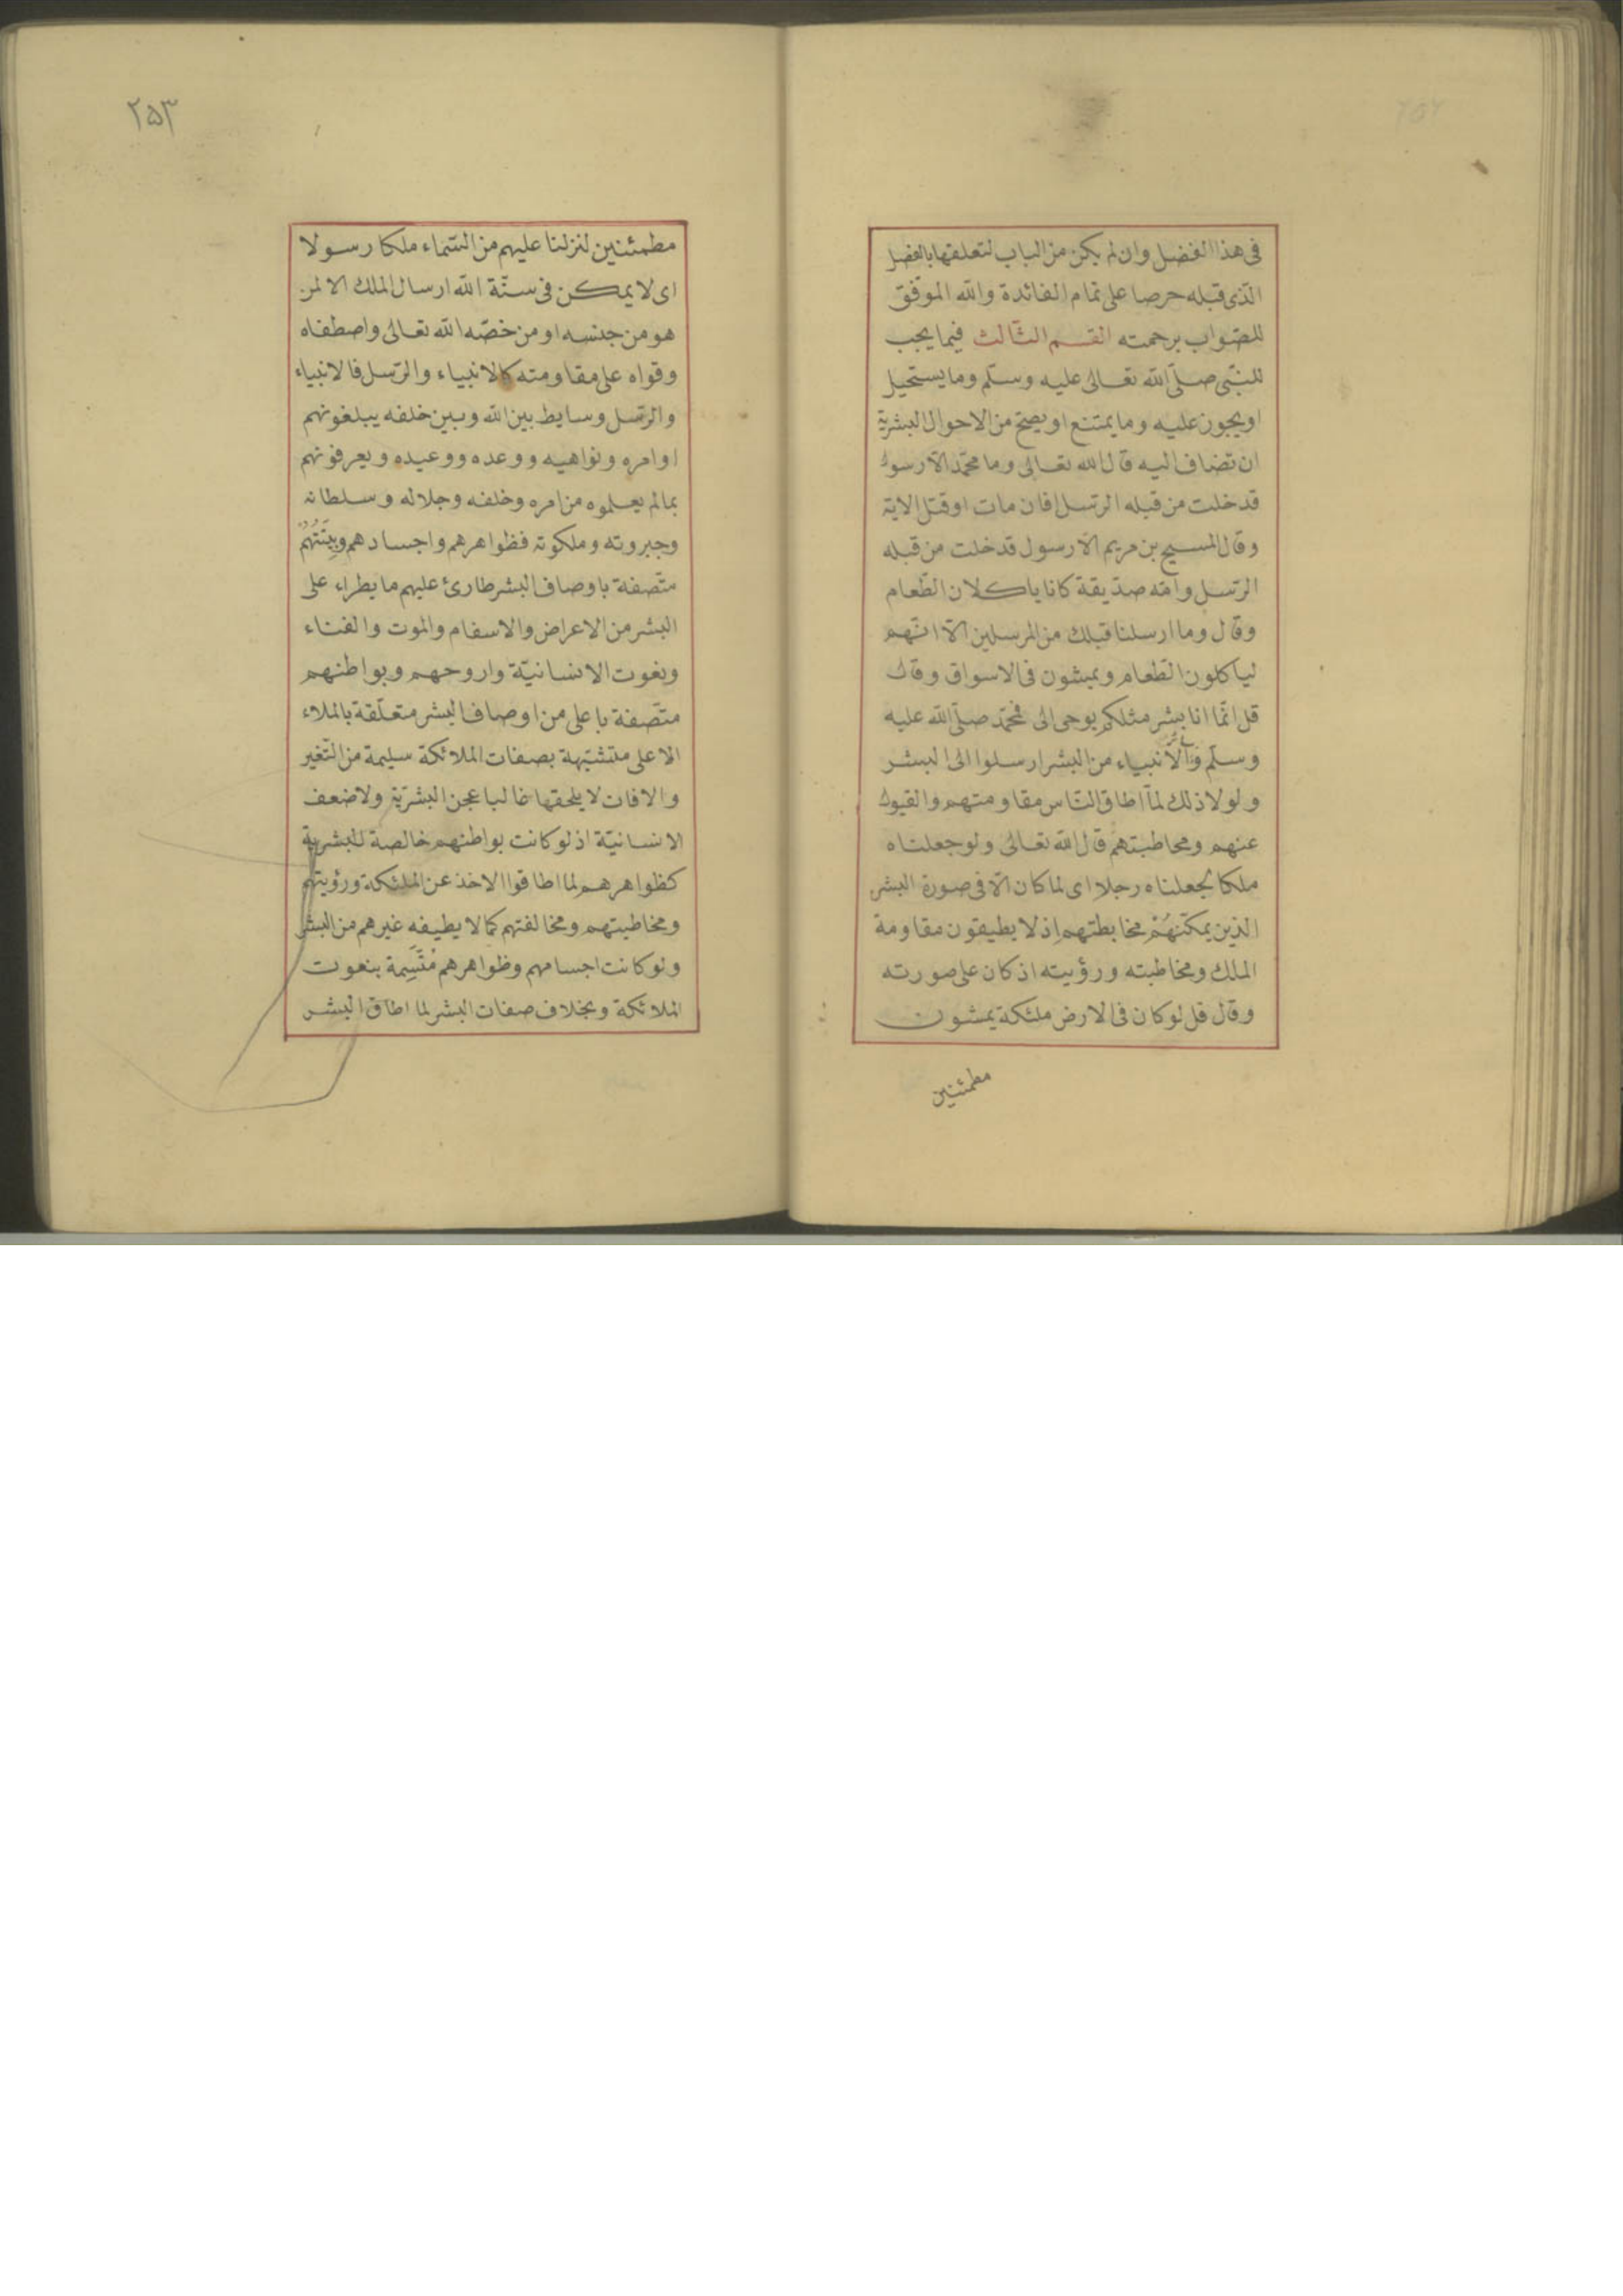 في هذا الفضل وان لم يكن من الباب لتعلقها بالفصل
الذى قبله حرصا على تمام الفائدة والله الموفق
للصواب برحمته القسم الثالث فيما يجب
للنبى صلى الله تعالى عليه وسلم وما يستحيل
او يجوز عليه وما يمتنع او يصح من الاحوال البشرية
ان تضاف اليه قال الله تعالى وما محمد الا رسول
قد خلت من قبله الرسل افان مات او قتل الاية
وقال المسيح بن مريم الا رسول قد خلت من قبله
الرسل وامه صديقة كانا ياكلان الطعام
وقال وما ارسلنا قبلك من المرسلين الا انهم
لياكلون الطعام ويمشون فى الاسواق وقال
قل انما انا بشر مثلكم يوحى الى فمحمد صلى الله عليه
وسلم وسائر الانبياء من البشر ارسلوا الى البشر
ولولا ذلك لما اطاق الناس مقاومتهم والقبول
عنهم ومخاطبتهم قال الله تعالى ولو جعلناه
ملكا لجعلناه رجلا اى لما كان الا فى صورة البشر
الذين يمكنهم مخابطتهم اذ لا يطيقون مقاومة
الملك ومخاطبته ورؤيته اذ كان على صورته
وقال قل لو كان فى الارض ملئكة يمشون
مطمئنين
۲۵۳
مطمئنين لنزلنا عليهم من السماء ملكا رسولا
اى لا يمكن فى سنة الله ارسال الملك الا لمن
هو من جنسه او من خصه الله تعالى واصطفاه
وقواه على مقاومته كالانبياء والرسل فالانبياء
والرسل وسايط بين الله وبين خلقه يبلغونهم
اوامره ونواهيه ووعده ووعيده ويعرفونهم
بما لم يعلموه من امره وخلقه وجلاله وسلطانه
وجبروته وملكوته فظواهرهم واجسادهم وبِنْيَتُهُم
متصفة باوصاف البشر طارئ عليهم ما يطراء على
البشر من الاعراض والاسقام والموت والفناء
ونعوت الانسانية واروحهم وبواطنهم
متصفة باعلى من اوصاف البشر متعلقة بالملاء
الاعلى متشبهة بصفات الملائكة سليمة من التغير
والافات لا يلحقها غالبا عجز البشرية ولا ضعف
الانسانية اذ لو كانت بواطنهم خالصة للبشرية
كظواهرهم لما اطاقوا الاخذ عن الملئكة ورؤيتهم
ومخاطبتهم ومخالفتهم كما لا يطيقه غيرهم من البشر
ولو كانت اجسامهم وظواهرهم مُتَّسِمة بنعوت
الملائكة وبخلاف صفات البشر لما اطاق البشر